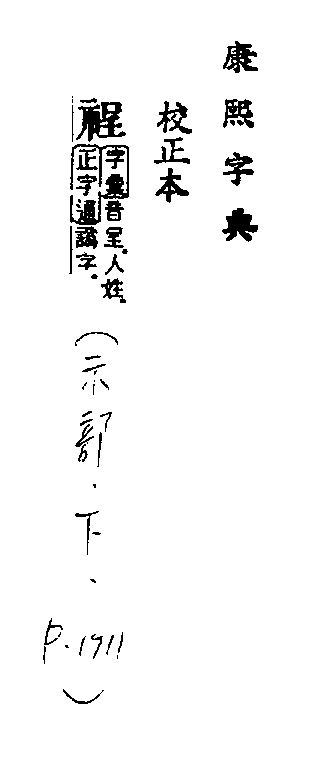 康熙字典
校正本
字彙音呈。人姓。
正字通譌字。
(示部．下．P.1711)